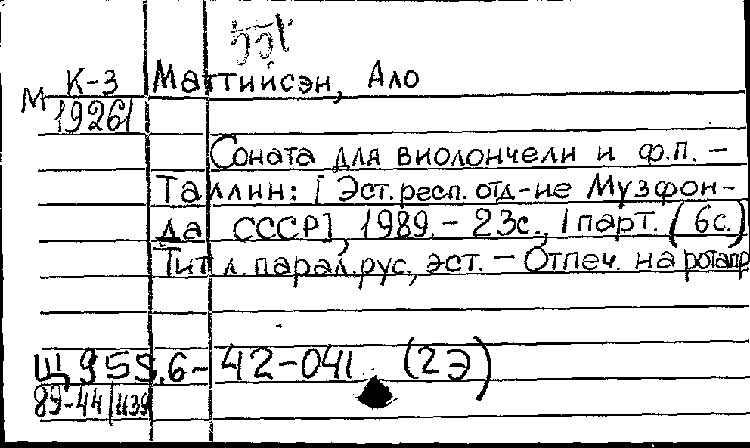 М К-3 Маттийсэн, Ало
19261
Соната для виолончели и ф.п. –
Таллин: [Эст. респ. отд-ние Музфон-
да СССР], 1989. – 23с., 1 парт. (6с.)
Тит л. парал. рус., эст. – Отпеч. на ротапр
Щ955.6-42-041 (2Э)
89-44